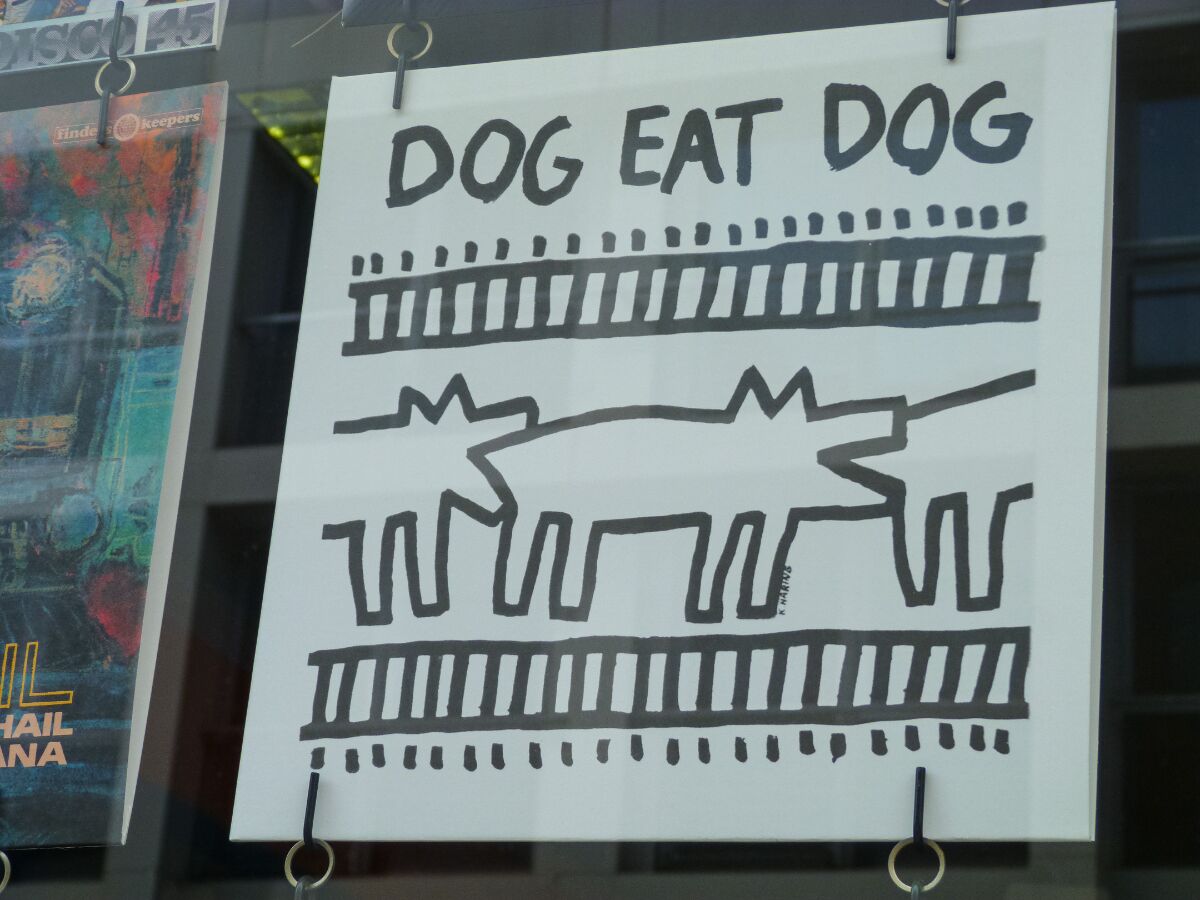 DISCO 45
finders keepers
DOG EAT DOG
K. HARING
IL
HAIL
ANA